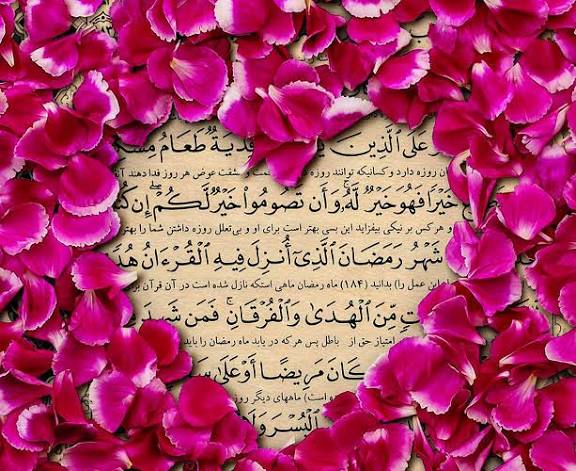 عَلَى ٱلَّذِينَ فِدْيَةٌ طَعَامُ
ن روزه دارد و کسانیکه توانند روزه و مشقت عوض هر روز فدا دهند آن
خَيْرًا فَهُوَ خَيْرٌ لَّهُۥ وَأَن تَصُومُوا۟ خَيْرٌ لَّكُمْ إِن
و هر کس بر نیکی بیفزاید این بسی بهتر است برای او و بی‌تعلل روزه داشتن شما را بهتر
شَهْرُ رَمَضَانَ ٱلَّذِىٓ أُنزِلَ فِيهِ ٱلْقُرْءَانُ
این عمل را) بدانید (۱۸۴) ماه رمضان ماهی استکه نازل شده است در آن قرآن
مِّنَ ٱلْهُدَىٰ وَٱلْفُرْقَانِ فَمَن
امتیاز حق از باطل پس هر که در یابد ماه رمضان را باید
كَانَ مَرِيضًا أَوْ عَلَىٰ
ماههای دیگر روزه